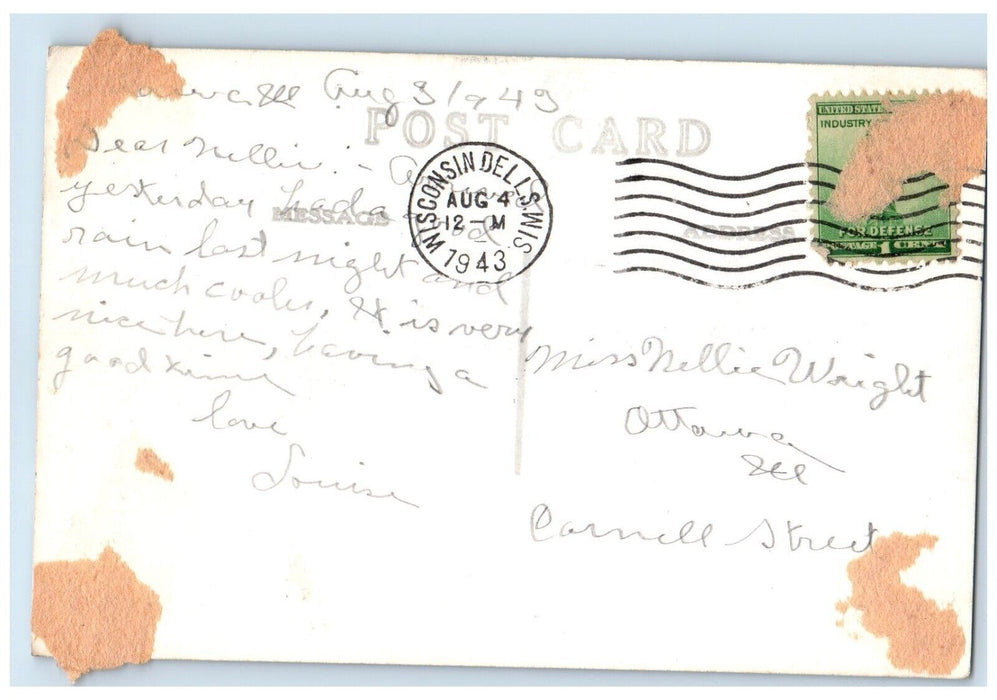 Ill Aug 3 1943
POST CARD
Dear Nellie: -
yesterday had a good
MESSAGE
rain last night and
much cooler, It is very
nice here, having a
good time
love
Louise
WISCONSIN DELLS WIS.
AUG 4
12 - M
1943
ADDRESS
UNITED STATE
INDUSTRY
FOR DEFENSE
POSTAGE 1 CENT
Miss Nellie Wright
Ottawa
Ill
Cornell Street